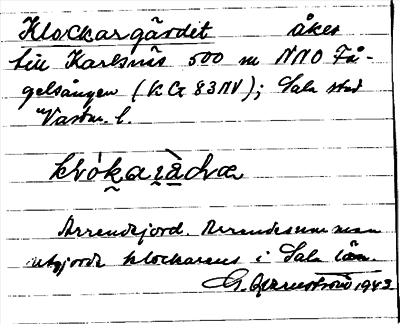 Klockargärdet åker
till Karlsnäs 500 m NNO Få-
gelsången (KG 83NV); Sala stad
Vastm. l.
Arrendejord. Arrendesumman
utgjorde klockarens i Sala lön.
1943